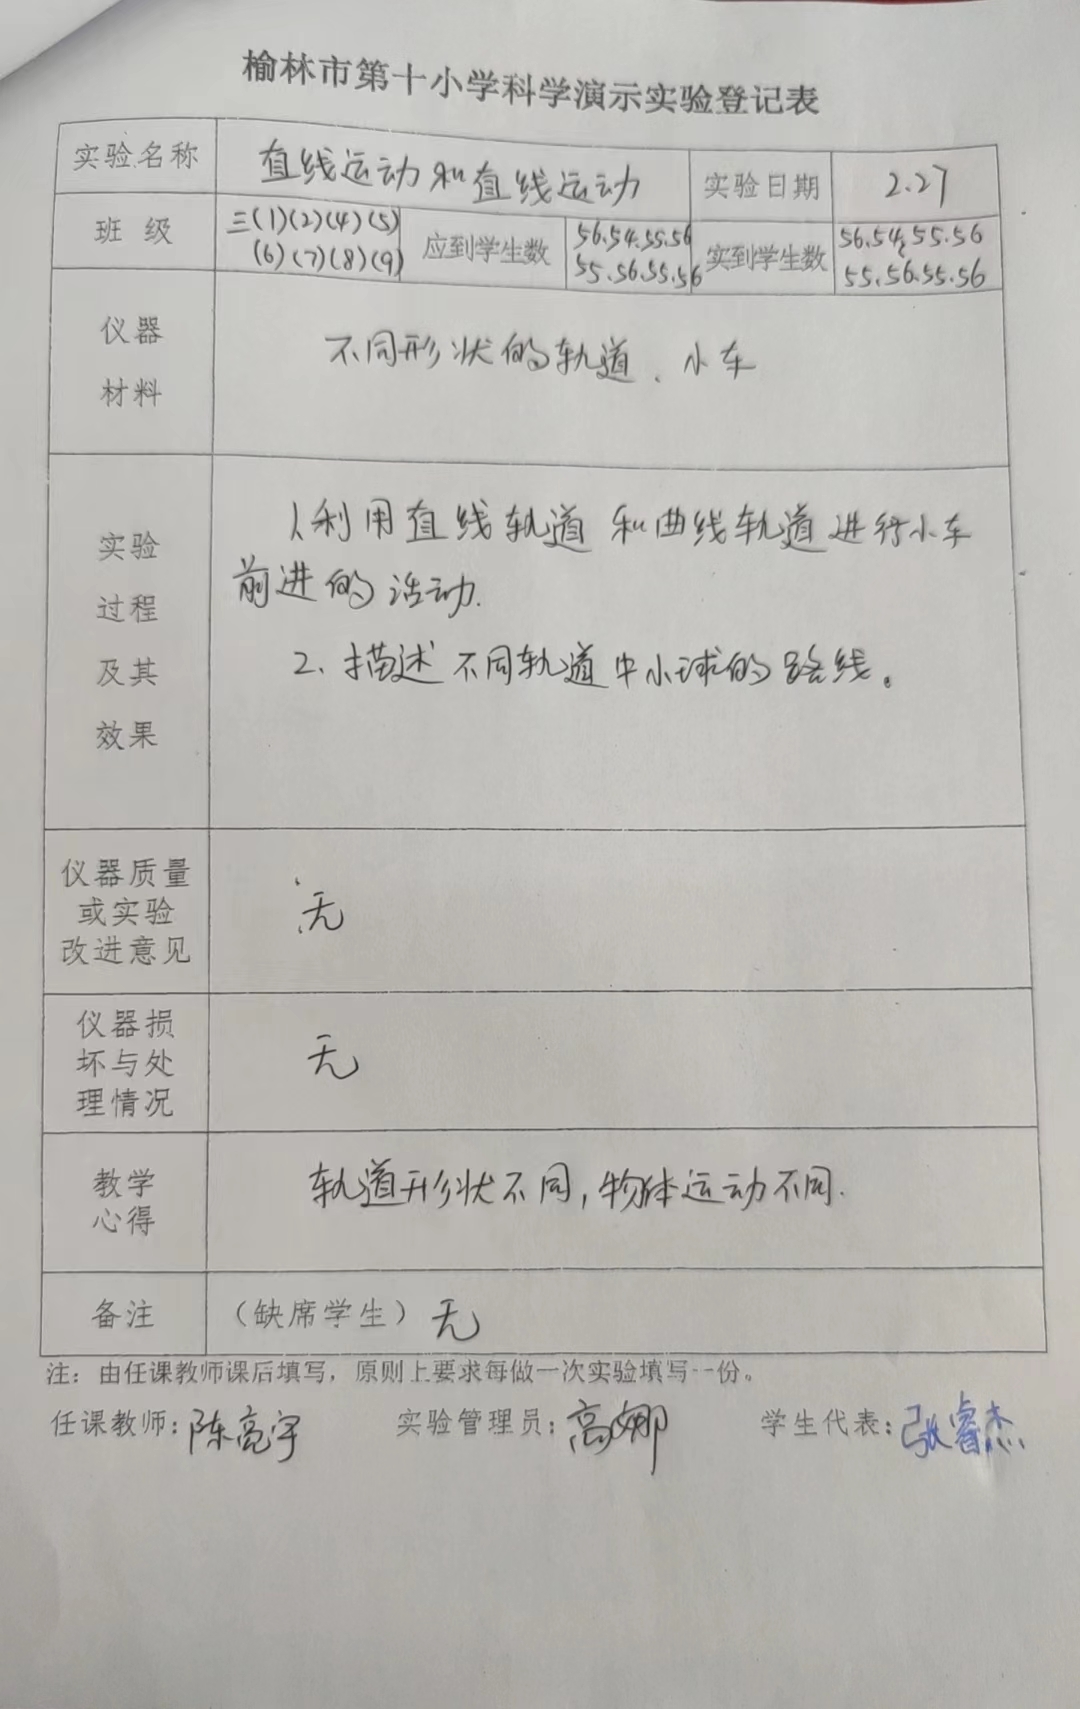 榆林市第十小学科学演示实验登记表
实验名称 直线运动和直线运动 实验日期 2.27
班 级 三(1)(2)(4)(5) 应到学生数 56.54.55.56 实到学生数 56.54.55.56
(6)(7)(8)(9) 55.56.55.56 55.56.55.56
仪器
材料
不同形状的轨道、小车
实验
过程
及其
效果
1.利用直线轨道和曲线轨道进行小车
前进的活动.
2、描述不同轨道中小球的路线。
仪器质量
或实验
改进意见
无
仪器损
坏与处
理情况
无
教学
心得
轨道形状不同,物体运动不同.
备注 （缺席学生）无
注：由任课教师课后填写，原则上要求每做一次实验填写一份。
任课教师:陈亮宇 实验管理员:高娜 学生代表:张睿杰